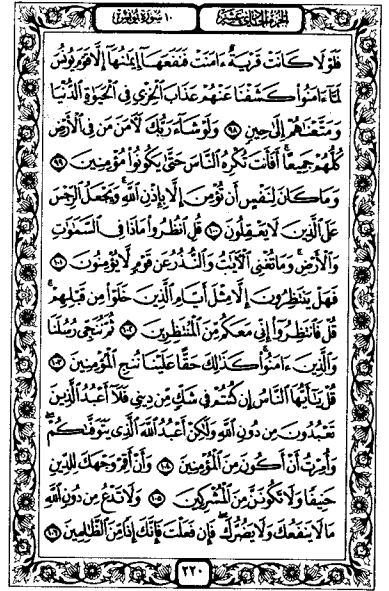 الجزء الحادي عشر ١٠ سورة يونس
فَلَوْلَا كَانَتْ قَرْيَةٌ ءَامَنَتْ فَنَفَعَهَآ إِيمَٰنُهَآ إِلَّا قَوْمَ يُونُسَ
لَمَّآ ءَامَنُوا۟ كَشَفْنَا عَنْهُمْ عَذَابَ ٱلْخِزْىِ فِى ٱلْحَيَوٰةِ ٱلدُّنْيَا
وَمَتَّعْنَٰهُمْ إِلَىٰ حِينٍ ٩٨ وَلَوْ شَآءَ رَبُّكَ لَءَامَنَ مَن فِى ٱلْأَرْضِ
كُلُّهُمْ جَمِيعًا ۚ أَفَأَنتَ تُكْرِهُ ٱلنَّاسَ حَتَّىٰ يَكُونُوا۟ مُؤْمِنِينَ ٩٩
وَمَا كَانَ لِنَفْسٍ أَن تُؤْمِنَ إِلَّا بِإِذْنِ ٱللَّهِ ۚ وَيَجْعَلُ ٱلرِّجْسَ
عَلَى ٱلَّذِينَ لَا يَعْقِلُونَ ١٠٠ قُلِ ٱنظُرُوا۟ مَاذَا فِى ٱلسَّمَٰوَٰتِ
وَٱلْأَرْضِ ۚ وَمَا تُغْنِى ٱلْءَايَٰتُ وَٱلنُّذُرُ عَن قَوْمٍ لَّا يُؤْمِنُونَ ١٠١
فَهَلْ يَنتَظِرُونَ إِلَّا مِثْلَ أَيَّامِ ٱلَّذِينَ خَلَوْا۟ مِن قَبْلِهِمْ ۚ
قُلْ فَٱنتَظِرُوٓا۟ إِنِّى مَعَكُم مِّنَ ٱلْمُنتَظِرِينَ ١٠٢ ثُمَّ نُنَجِّى رُسُلَنَا
وَٱلَّذِينَ ءَامَنُوا۟ ۚ كَذَٰلِكَ حَقًّا عَلَيْنَا نُنجِ ٱلْمُؤْمِنِينَ ١٠٣
قُلْ يَٰٓأَيُّهَا ٱلنَّاسُ إِن كُنتُمْ فِى شَكٍّ مِّن دِينِى فَلَآ أَعْبُدُ ٱلَّذِينَ
تَعْبُدُونَ مِن دُونِ ٱللَّهِ وَلَٰكِنْ أَعْبُدُ ٱللَّهَ ٱلَّذِى يَتَوَفَّىٰكُمْ ۖ
وَأُمِرْتُ أَنْ أَكُونَ مِنَ ٱلْمُؤْمِنِينَ ١٠٤ وَأَنْ أَقِمْ وَجْهَكَ لِلدِّينِ
حَنِيفًا وَلَا تَكُونَنَّ مِنَ ٱلْمُشْرِكِينَ ١٠٥ وَلَا تَدْعُ مِن دُونِ ٱللَّهِ
مَا لَا يَنفَعُكَ وَلَا يَضُرُّكَ ۖ فَإِن فَعَلْتَ فَإِنَّكَ إِذًا مِّنَ ٱلظَّٰلِمِينَ ١٠٦
٢٢٠